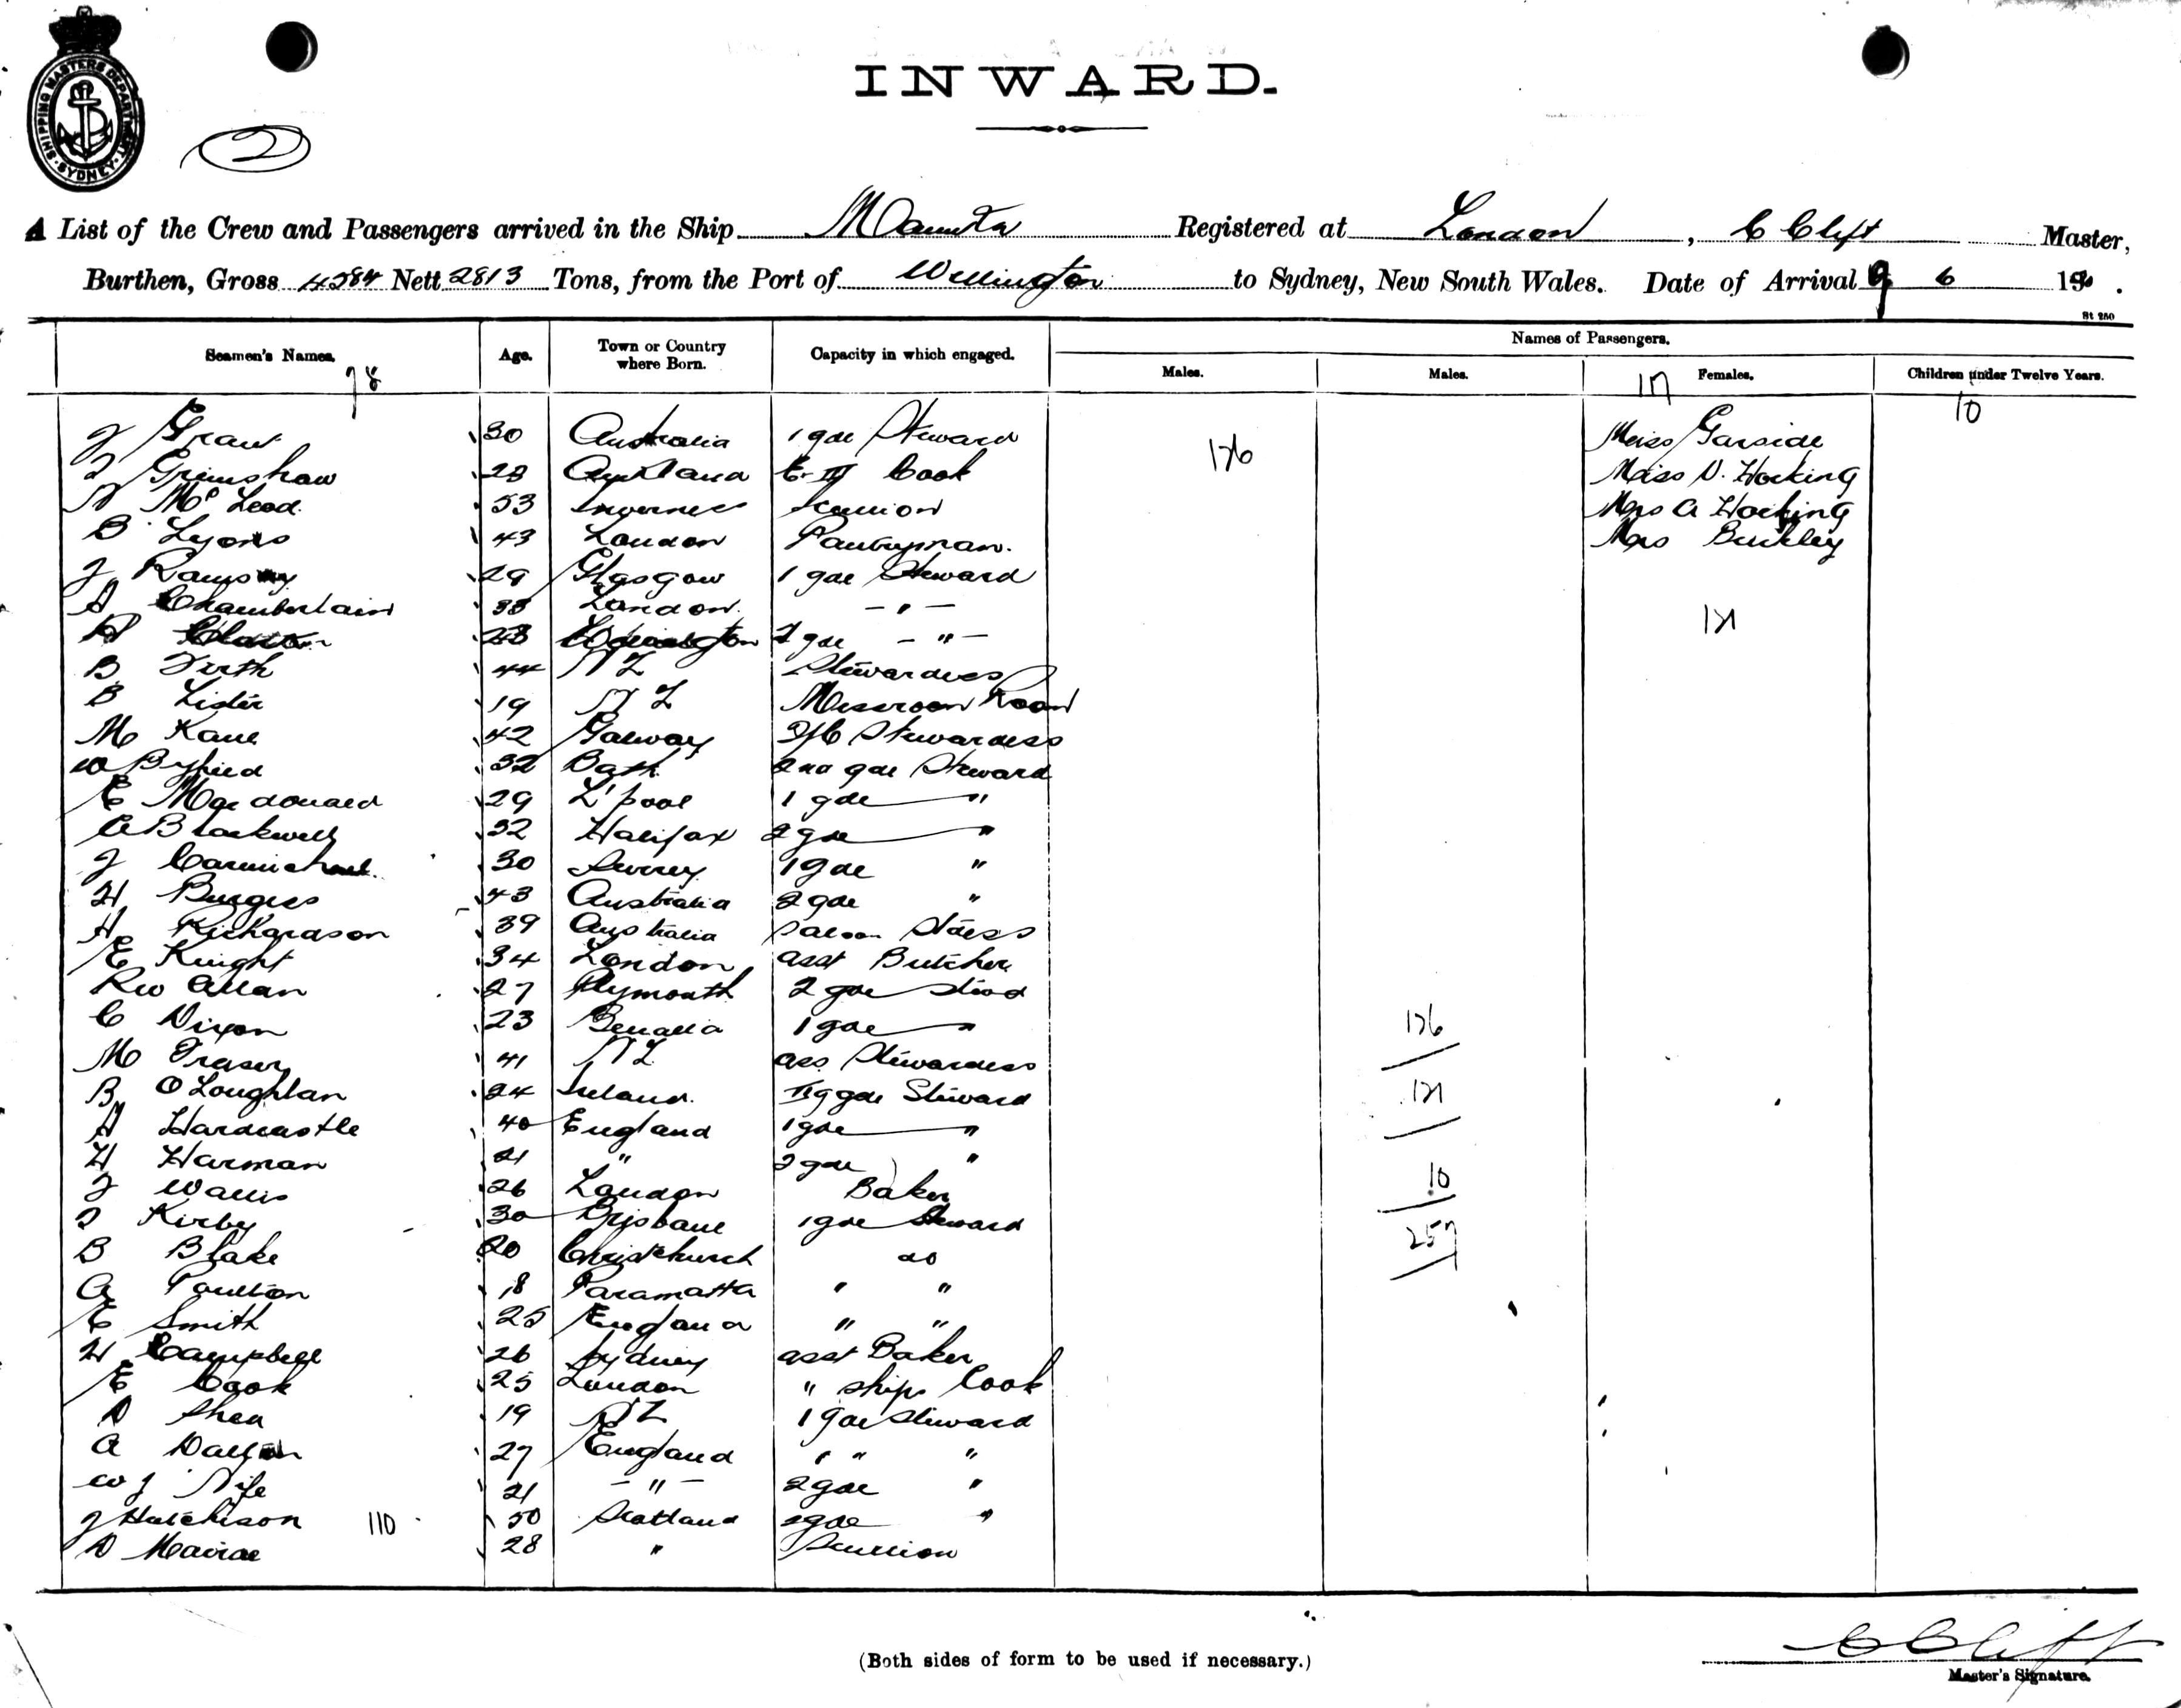 SHIPPING MASTERS DEPARTMENT. SYDNEY
INWARD.
2
A List of the Crew and Passengers arrived in the Ship Manuka Registered at London, C Clift Master,
Burthen, Gross 4384 Nett 2813 Tons, from the Port of Wellington to Sydney, New South Wales. Date of Arrival 9 6 19
St 250
Seamen's Names. Age. Town or Country where Born. Capacity in which engaged. Names of Passengers.
Males. Males. Females. Children under Twelve Years.
78 117 10
J Grant 30 Australia 1 gde Steward 126 Miss Garside
Grimshaw 28 Cook Miss D. Hocking
N McLeod 53 Inverness Scullion Mrs A Hocking
B Lyons 43 London Pantryman. Mrs Buckley
J Ramsay 29 Glasgow 1 gde Steward
A Chamberlain 38 London. - " - 121
28 2 gde - " -
B Firth 44 NZ Stewardess
B Lister 19 NZ Messroom
M Kane 42 Galway Stewardess
W Byfield 32 Bath 2nd gde Steward
E Macdonald 29 L'pool 1 gde "
A Blackwell 32 Halifax 2 gde "
J Carmichael 30 Surrey 1 gde "
H Burgess 43 Australia 2 gde "
H Richardson 39 Australia Saloon Stdess
E Knight 34 London asst Butcher
RW Allan 27 Plymouth 2 gde Stwd
C Dixon 23 Benalla 1 gde " 126
M Fraser 41 NZ ass Stewardess
B O'Loughlan 24 Ireland. gde Steward 121
A Hardcastle 40 England 1 gde "
H Harman 21 " 2 gde "
J Wallis 26 London Baker 10
J Kirby 30 Brisbane 1 gde Steward
B Blake 20 Christchurch do 257
A Poulton 18 Paramatta " "
E Smith 25 England " "
H Campbell 26 Sydney asst Baker
E Cook 25 London " ships Cook
D Shea 19 NZ 1 gde Steward
A Dalton 27 England " " "
W J Fife 21 - " - 2 gde "
J Hutchison 110 50 Scotland 2 gde "
D 28 " Scullion
(Both sides of form to be used if necessary.)
C Clift
Master's Signature.